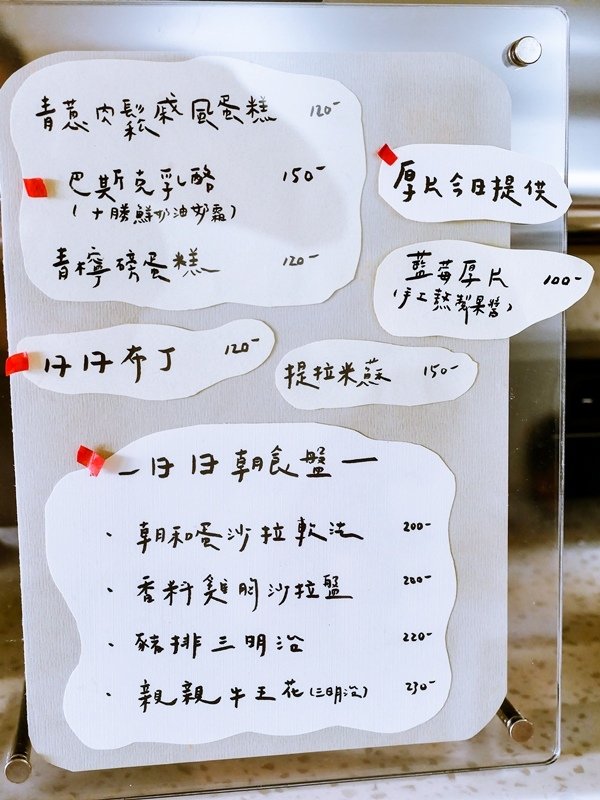 青蔥肉鬆戚風蛋糕 120-
巴斯克乳酪 150-
(十勝鮮奶油奶霜)
青檸磅蛋糕 120-
厚片今日提供
藍莓厚片 100-
(手工熬製果醬)
日日布丁 120-
提拉米蘇 150-
— 日日朝食盤 —
· 朝和蛋沙拉軟法 200-
· 香料雞胸沙拉盤 200-
· 豬排三明治 220-
· 親親牛五花(三明治) 230-